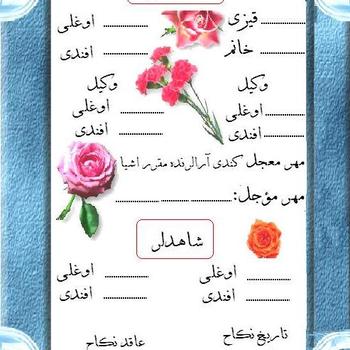 ............ قیزی ............ اوغلی
............ خانم ............ افندی
وکیل وکیل
............ اوغلی ............ اوغلی
............ افندی ............ افندی
مهر معجل کندی آرالرنده مقرر اشیا
مهر مؤجل: ............ ............ ............
شاهدلر
............ اوغلی ............ اوغلی
............ افندی ............ افندی
تاریخ نکاح عاقد نکاح